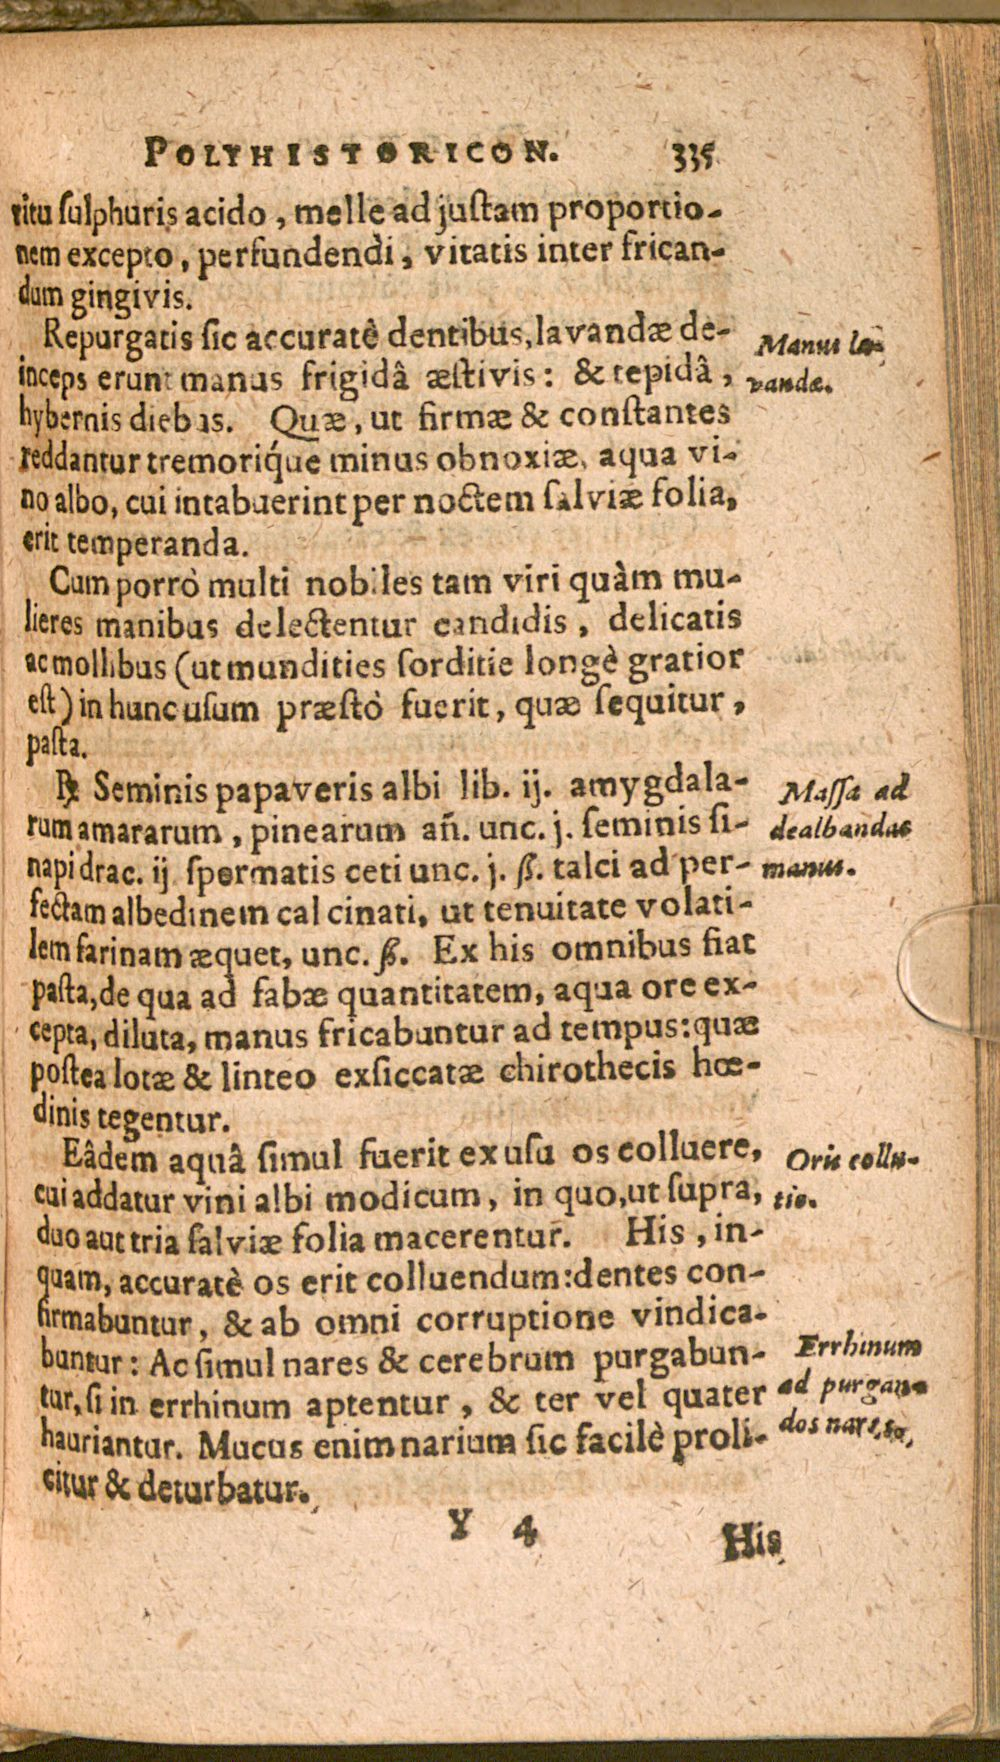 POLYHISTORICON. 335
ritu sulphuris acido, melle ad justam proportio-
nem excepto, perfundendi, vitatis inter frican-
dum gingivis.
Repurgatis sic accuratè dentibus, lavandæ de-
inceps erunt manus frigidâ æstivis: & tepidâ,
hybernis diebus. Quæ, ut firmæ & constantes
reddantur tremoriq́ue minus obnoxiæ, aqua vi-
no albo, cui intabuerint per noctem salviæ folia,
erit temperanda.
Manus la-
vandæ.
Cum porrò multi nobiles tam viri quàm mu-
lieres manibus delectentur candidis, delicatis
ac mollibus (ut mundities sorditie longè gratior
est) in hunc usum præstò fuerit, quæ sequitur,
pasta.
℞ Seminis papaveris albi lib. ij. amygdala-
rum amararum, pinearum añ. unc. j. seminis si-
napi drac. ij spermatis ceti unc. j. ß. talci ad per-
fectam albedinem calcinati, ut tenuitate volati-
lem farinam æquet, unc. ß. Ex his omnibus fiat
pasta, de qua ad fabæ quantitatem, aqua ore ex-
cepta, diluta, manus fricabuntur ad tempus: quæ
postea lotæ & linteo exsiccatæ chirothecis hœ-
dinis tegentur.
Massa ad
dealbandas
manus.
Eâdem aquâ simul fuerit ex usu os colluere,
cui addatur vini albi modicum, in quo, ut supra,
duo aut tria salviæ folia macerentur. His, in-
quam, accuratè os erit colluendum: dentes con-
firmabuntur, & ab omni corruptione vindica-
buntur: Ac simul nares & cerebrum purgabun-
tur, si in errhinum aptentur, & ter vel quater
hauriantur. Mucus enim narium sic facilè proli-
citur & deturbatur.
Oris collu-
tio.
Errhinum
ad purgan-
dos nares,
Y 4 His